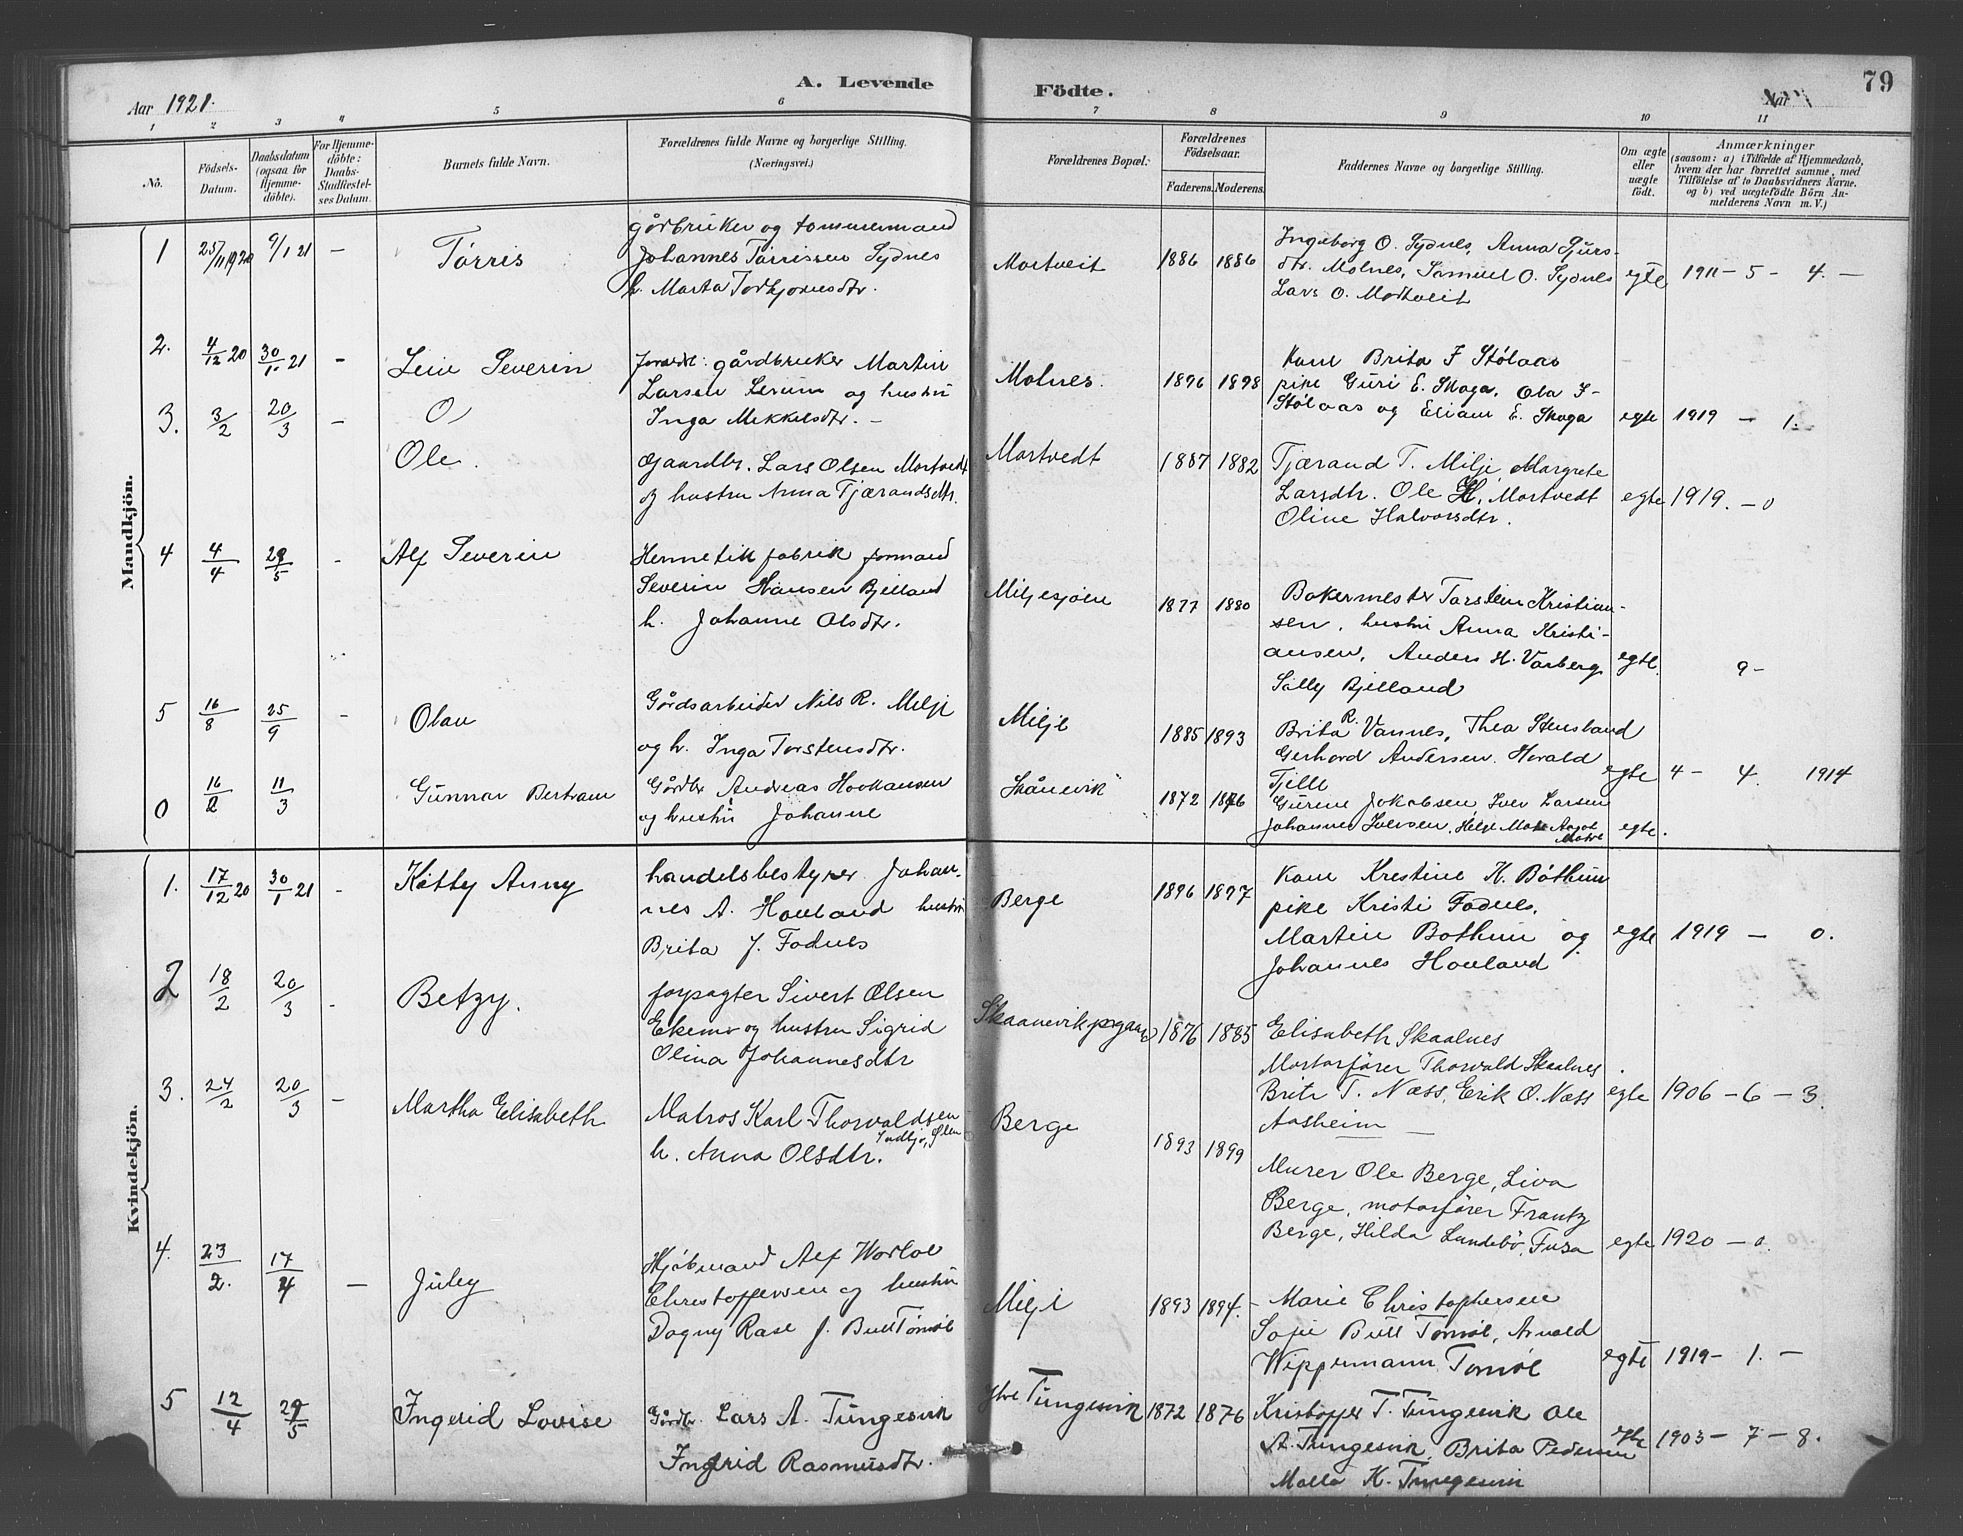 79
A. Levende Födte.
Aar 1921. Aar
1 2 3 4 5 6 7 8 9 10 11
No.
Födsels-Datum.
Daabsdatum (ogsaa for Hjemme-döbte).
For Hjemme-döbte: Daabs-Stadfæstel-ses Datum.
Barnets fulde Navn.
Forældrenes fulde Navne og borgerlige Stilling. (Næringsvei.)
Forældrenes Bopæl.
Forældrenes Födselsaar.
Faderens. Moderens.
Faddernes Navne og borgerlige Stilling.
Om ægte eller uægte födt.
Anmærkninger
(saasom: a) i Tilfælde af Hjemmedaab, hvem der har forrettet samme, med Tilföielse af to Daabsvidners Navne. og b) ved uægtefödte Börn An-melderens Navn m. V.)
Mandkjön.
1 25/11 1920 9/1 21 — Tørris
gårdbruker og tømmermand
Johannes Tørrissen Sydnes
h. Marta Torbjørnsdtr.
Mortveit 1886 1886
Ingeborg O. Sydnes, Anna Sjurs-
dtr. Molnes, Samuel O. Sydnes
Lars O. Mortveit
egte 1911 – 5 – 4. –
2. 4/12 20 30/1 21 – Leiv Severin
Forældr: gårdbruker Martin
Larsen Lerum og hustru
Inga Mikkelsdtr. –
Molnes. 1896 1898
Kone Brita F Stølaas
pike Guri E. Skoga, Ola F-
Stølaas og Eliam E. Skoga
egte 1919 – 1.
3. 3/2 20/3 – Ole.
Gaardbr. Lars Olsen Mortvedt
og hustru Anna Tjærandsdtr.
Mortvedt 1887 1882
Tjærand T. Milje, Margrete
Larsdtr. Ole H. Mortvedt
Oline Halvorsdtr.
egte 1919. – 0
4 4/4 29/5 – Alf Severin
Hermetikfabrik formand
Severin Hansen Bjelland
h. Johanne Olsdtr.
Miljesjøen 1877 1880
Bakermester Torstein Kristian-
sen, hustru Anna Kristi-
ansen, Anders H. Varberg
Sally Bjelland
egte. 9 –
5 16/8 25/9 – Olav
Gårdsarbeider Nils R. Milje
og h. Inga Torstensdtr.
Milje 1885 1893
Brita R. Vannes, Thea Stensland
Gerhard Andersen. Harald
Tjelle
egte 4 – 4. 1914
0 16/2 11/3 Gunnar Bertram
Gårdbr Andreas Haakansen
og hustru Johanne
Skånevik 1872 1876
Gurine Jakobsen, Iver Larsen
Johannes Iversen, Helge Matre
egte.
Kvindekjön.
1. 17/12 20 30/1 21 – Kitty Anny
handelsbestyrer Johan-
nes A. Hovland hustru
Brita J. Fadnes
Berge 1896 1897
Kone Krestine K. Bothun
pike Kristi Fadnes,
Martin Bothun og
Johannes Hovland
egte 1919 – 0.
2 18/2 20/3 – Betzy.
forpagter Sivert Olsen
Ekemo og hustru Sigrid
Olina Johannesdtr
Skaanevik pgaard 1876 1885
Elisabeth Skaalnes
Mortorfører Thorvald Skaalnes
Brite T. Næss, Erik O. Næss
Aasheim
egte 1906 – 6 – 3.
3. 24/2 20/3 – Martha Elisabeth
Matros Karl Thorvaldsen
h. Anna Olsdtr.
Berge 1893 1899
Murer Ole Berge, Liva
Berge, motorfører Frantz
Berge, Hilda Lundebø, Fusa
egte 1920 – 0.
4. 23/2. 17/4 – Juley
Hjøbmand Alf Worloe
Christoffersen og hustru
Dagny Rase f. Bull Tornøe
Milje 1893 1894.
Marie Christophersen
Sofie Bull Tornøe, Arvold
Wippermann Tornøe
egte 1919 – 1. –
5 12/4 29/5 Ingerid Lovise
Gårdbr. Lars A. Tungesvik
Ingrid Rasmusdtr.
ytre Tungesvik 1872 1876
Kristoffer T. Tungesvik Ole
A. Tungesvik, Brita Pedersen
Malla K. Tungesvik
egte 1903 – 7 – 8.